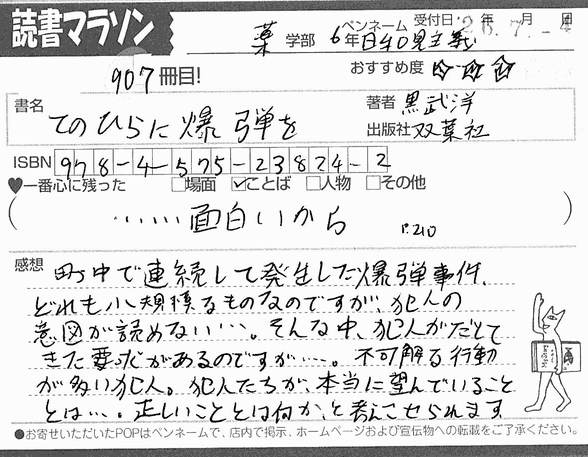 読書マラソン
薬 学部 6年 ペンネーム 日和見主義 受付日 '26年 7.月 -4日
907冊目! おすすめ度 ☆☆☆
書名 てのひらに爆弾を 著者 黒武洋
出版社 双葉社
ISBN 978-4-575-23824-2
♥一番心に残った □場面 ☑ことば □人物 □その他
(……面白いから P.210)
感想 町中で連続して発生した爆弾事件。
どれも小規模なものなのですが、犯人の
意図が読めない…。そんな中、犯人がだとて
きた要求があるのですが…。不可解な行動
が多い犯人。犯人たちが、本当に望んでいること
とは…。正しいこととは何か、と考えさせられます
●お寄せいただいたPOPはペンネームで、店内で掲示、ホームページおよび宣伝物への転載をご了承ください。